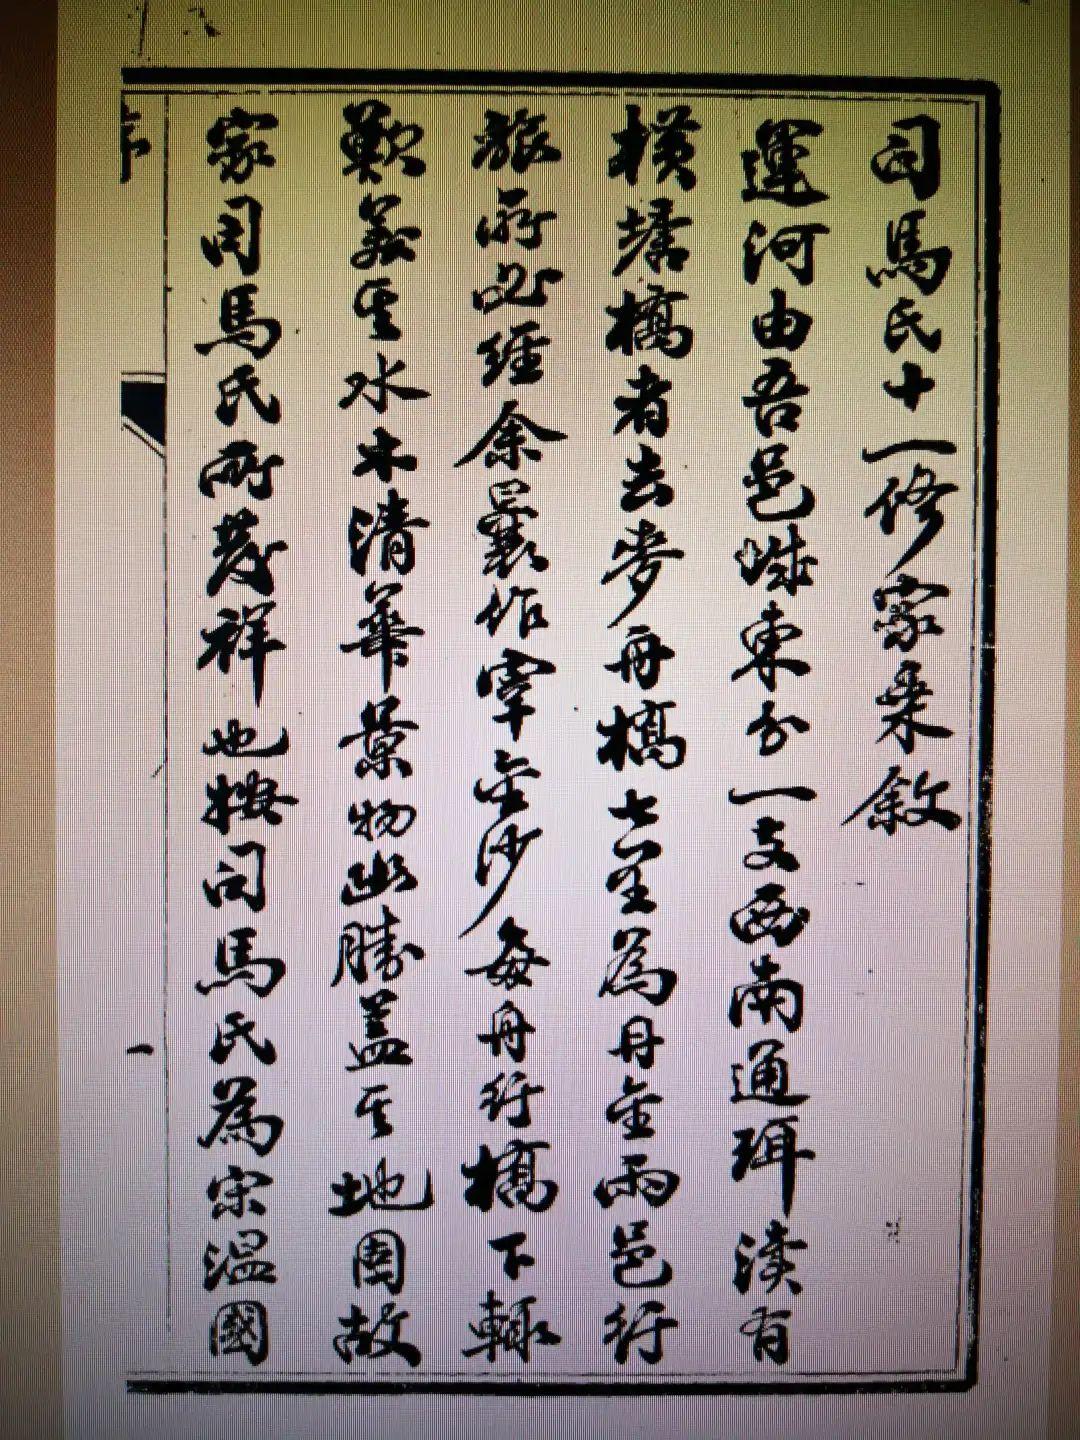 司馬氏十一修家乘敘
運河由吾邑城東分一支西南通珥瀆有
橫塘橋者去麥舟橋七里為丹金兩邑行
旅所必經余曩作宰金沙每舟行橋下輒
歎美其水木清華景物幽勝蓋其地固故
家司馬氏所發祥也按司馬氏為宋溫國
序
一